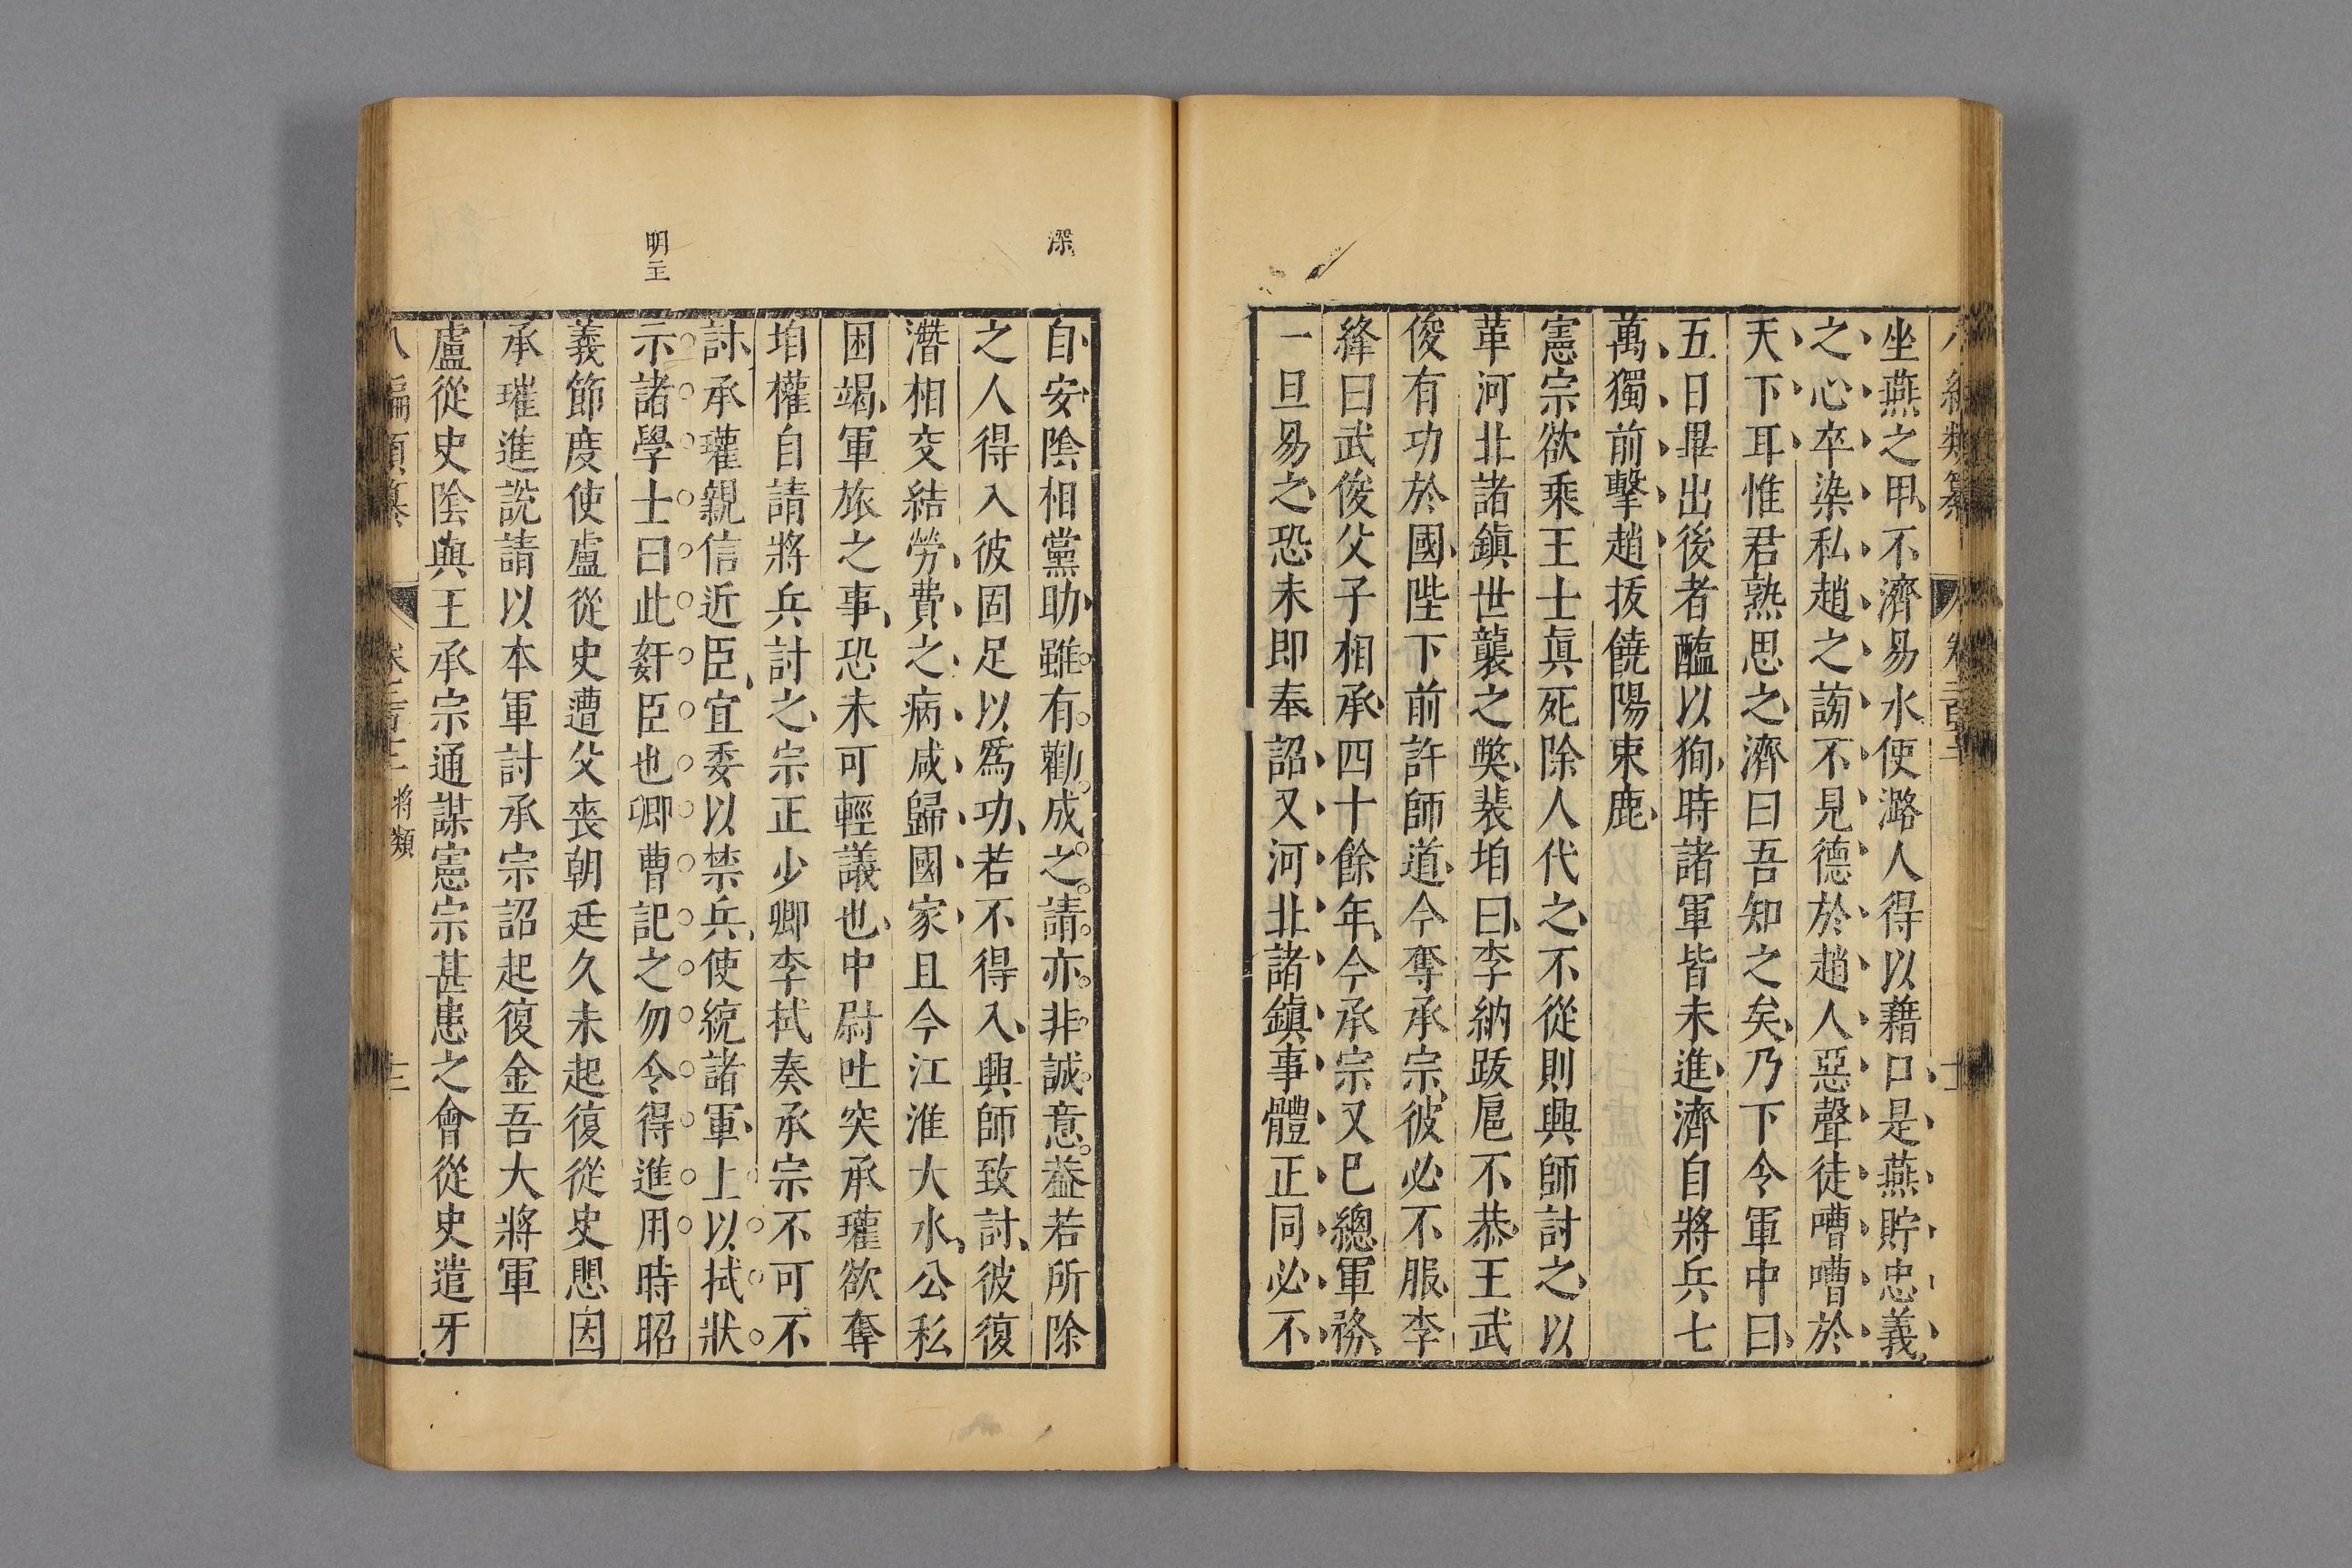 坐燕之甲不濟易水使潞人得以藉口是燕貯忠義
之心卒染私趙之謗不見德於趙人惡聲徒嘈嘈於
天下耳惟君熟思之濟曰吾知之矣乃下令軍中曰
五日畢出後者醢以狥時諸軍皆未進濟自將兵七
萬獨前擊趙拔饒陽束鹿
憲宗欲乘王士眞死除人代之不從則興師討之以
革河北諸鎮世襲之獘裴垍曰李納跋扈不恭王武
俊有功於國陛下前許師道今奪承宗彼必不服李
絳曰武俊父子相承四十餘年今承宗又巳總軍務
一旦易之恐未即奉詔又河北諸鎮事體正同必不
深
自安陰相黨助雖有勸成之請亦非誠意葢若所除
之人得入彼固足以爲功若不得入興師致討彼復
潛相交結勞費之病咸歸國家且今江淮大水公私
困竭軍旅之事恐未可輕議也中尉吐突承瓘欲奪
垍權自請將兵討之宗正少卿李拭奏承宗不可不
討承瓘親信近臣宜委以禁兵使統諸軍上以拭狀
明主
示諸學士曰此奸臣也卿曹記之勿令得進用時昭
義節度使盧從史遭父喪朝廷久未起復從史思因
承璀進說請以本軍討承宗詔起復金吾大將軍
盧從史陰與王承宗通謀憲宗甚患之會從史遣牙
八編類纂
將類